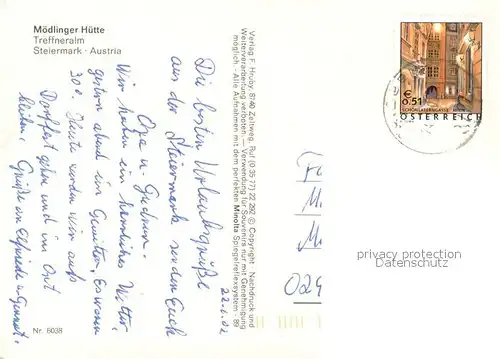 Mödlinger Hütte
Treffneralm
Steiermark · Austria
Die besten Urlaubsgrüße
aus der Steiermark senden Euch
Opa u. Gudrun.
Wir haben ein herrliches Wetter,
gestern abend ein Gewitter, es waren
30°. Heute werden wir aufs
Dorffest gehen und im Ort
bleiben. Grüße an Elfriede u. Gunnar.
22.6.02
Nr. 6038
Verlag F. Hruby, 8140 Zeltweg, Ruf (0 35 77) 22 292 © Copyright · Nachdruck und
Weiterverarbeitung verboten. – Verwendung für Souvenirs nur mit Genehmigung
möglich. - Alle Aufnahmen mit dem perfekten Minolta Spiegelreflexsystem · 89
€
0,51
SCHÖNLATERNGASSE WIEN
ÖSTERREICH
privacy protection
Datenschutz